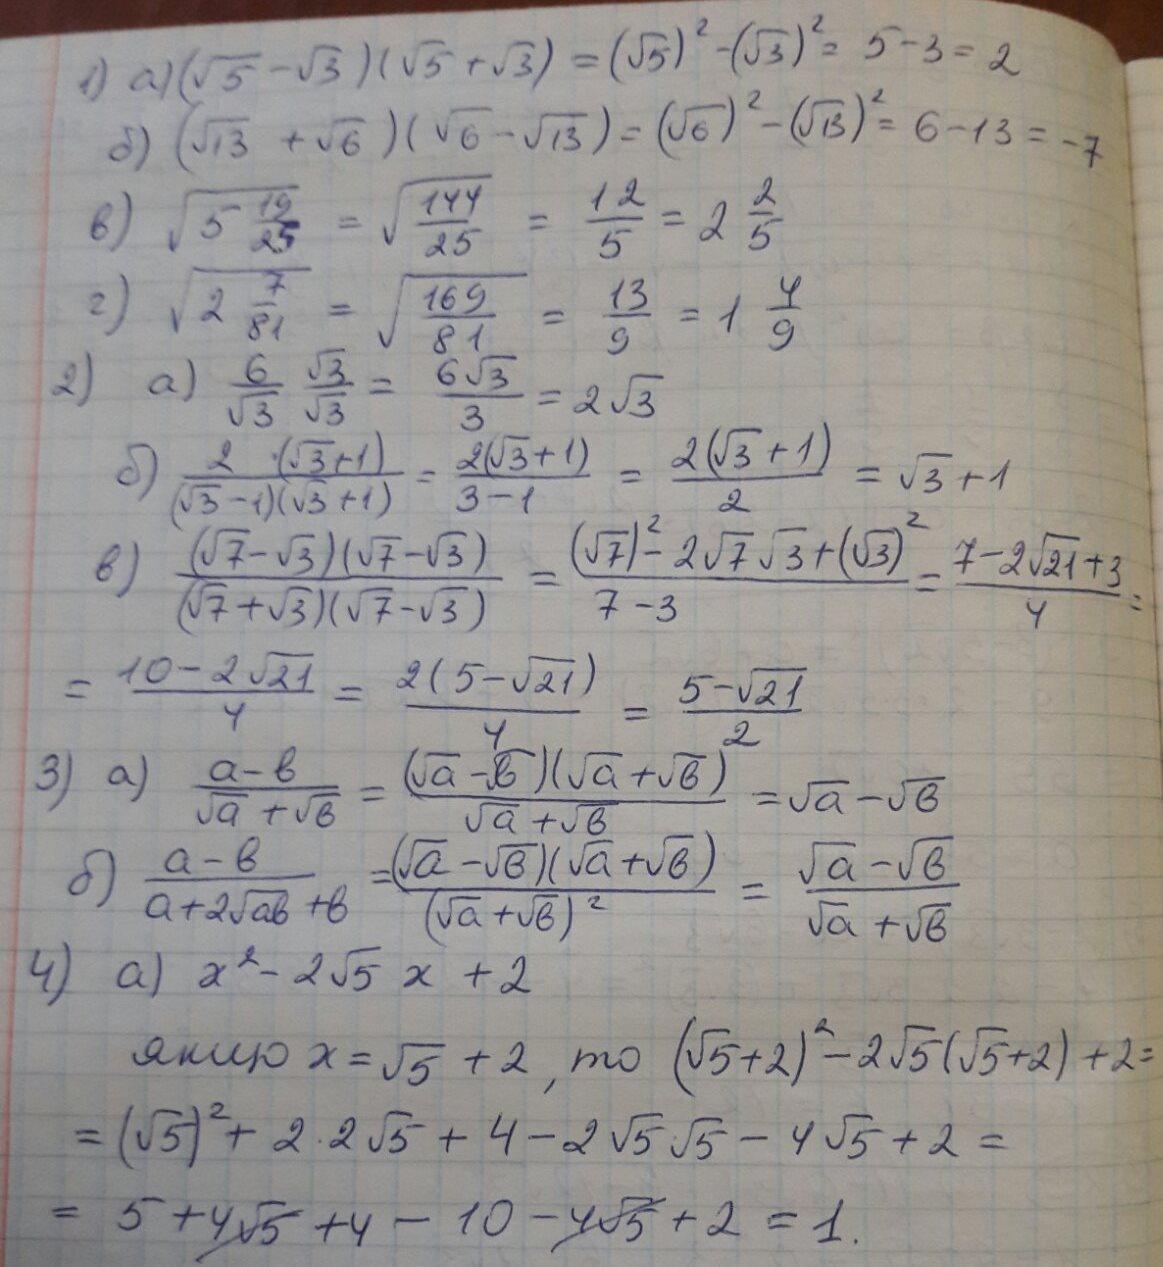 1) а) (√5 - √3)(√5 + √3) = (√5)² - (√3)² = 5 - 3 = 2
б) (√13 + √6)(√6 - √13) = (√6)² - (√13)² = 6 - 13 = -7
в) √(5 19/25) = √(144/25) = 12/5 = 2 2/5
г) √(2 7/81) = √(169/81) = 13/9 = 1 4/9
2) а) 6/√3 √3/√3 = 6√3/3 = 2√3
б) 2·(√3+1)/(√3-1)(√3+1) = 2(√3+1)/3-1 = 2(√3+1)/2 = √3+1
в) (√7-√3)(√7-√3)/(√7+√3)(√7-√3) = (√7)²-2√7√3+(√3)²/7-3 = 7-2√21+3/4 =
= 10-2√21/4 = 2(5-√21)/4 = 5-√21/2
3) а) а-в/√а+√в = (√а-√в)(√а+√в)/√а+√в = √а-√в
б) а-в/а+2√ав+в = (√а-√в)(√а+√в)/(√а+√в)² = √а-√в/√а+√в
4) а) x² - 2√5 x + 2
якщо x = √5 + 2, то (√5+2)² - 2√5(√5+2) + 2 =
= (√5)² + 2·2√5 + 4 - 2√5√5 - 4√5 + 2 =
= 5 + 4√5 + 4 - 10 - 4√5 + 2 = 1.